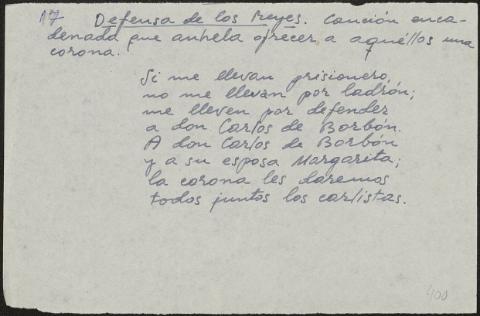 17 Defensa de los Reyes. Canción enca-
denada que anhela ofrecer a aquéllos una
corona.
Si me llevan prisionero,
no me llevan por ladrón;
me lleven por defender
a don Carlos de Borbón.
A don Carlos de Borbón
y a su esposa Margarita;
la corona les daremos
todos juntos los carlistas.
400